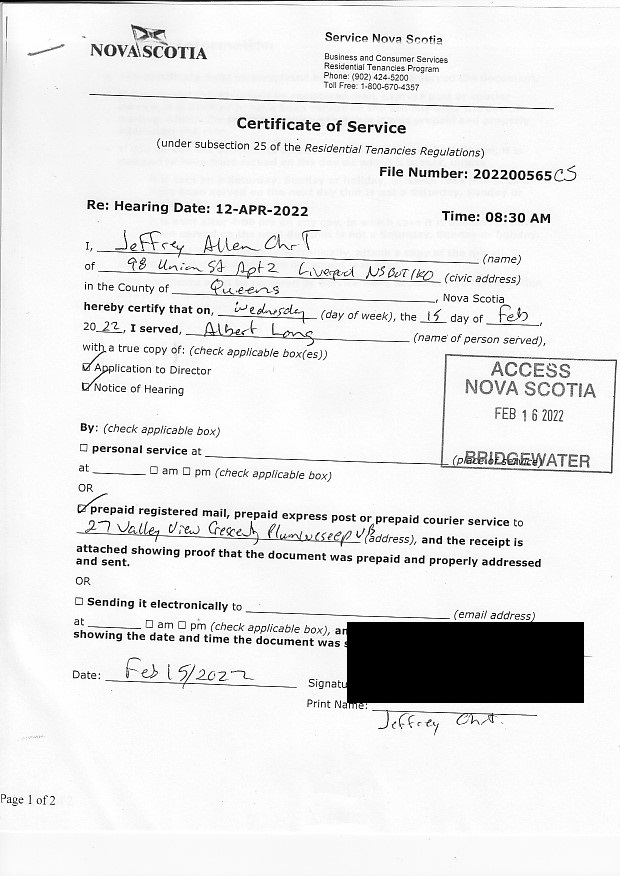 NOVA SCOTIA
Service Nova Scotia
Business and Consumer Services
Residential Tenancies Program
Phone: (902) 424-5200
Toll Free: 1-800-670-4357
Certificate of Service
(under subsection 25 of the Residential Tenancies Regulations)
File Number: 202200565 CS
Re: Hearing Date: 12-APR-2022
Time: 08:30 AM
I, Jeffrey Allen (name)
of 98 Union St Apt 2 Liverpool NS B0T 1K0 (civic address)
in the County of Queens, Nova Scotia
hereby certify that on, Wednesday (day of week), the 15 day of Feb,
20 22, I served, Albert Long (name of person served),
with a true copy of: (check applicable box(es))
Application to Director
Notice of Hearing
ACCESS
NOVA SCOTIA
FEB 16 2022
BRIDGEWATER
By: (check applicable box)
☐ personal service at (place of service)
at ☐ am ☐ pm (check applicable box)
OR
prepaid registered mail, prepaid express post or prepaid courier service to
27 Valley View Crescent (address), and the receipt is
attached showing proof that the document was prepaid and properly addressed
and sent.
OR
☐ Sending it electronically to (email address)
at ☐ am ☐ pm (check applicable box), an
showing the date and time the document was s
Date: Feb 15/2022
Signatu
Print Name: Jeffrey
Page 1 of 2